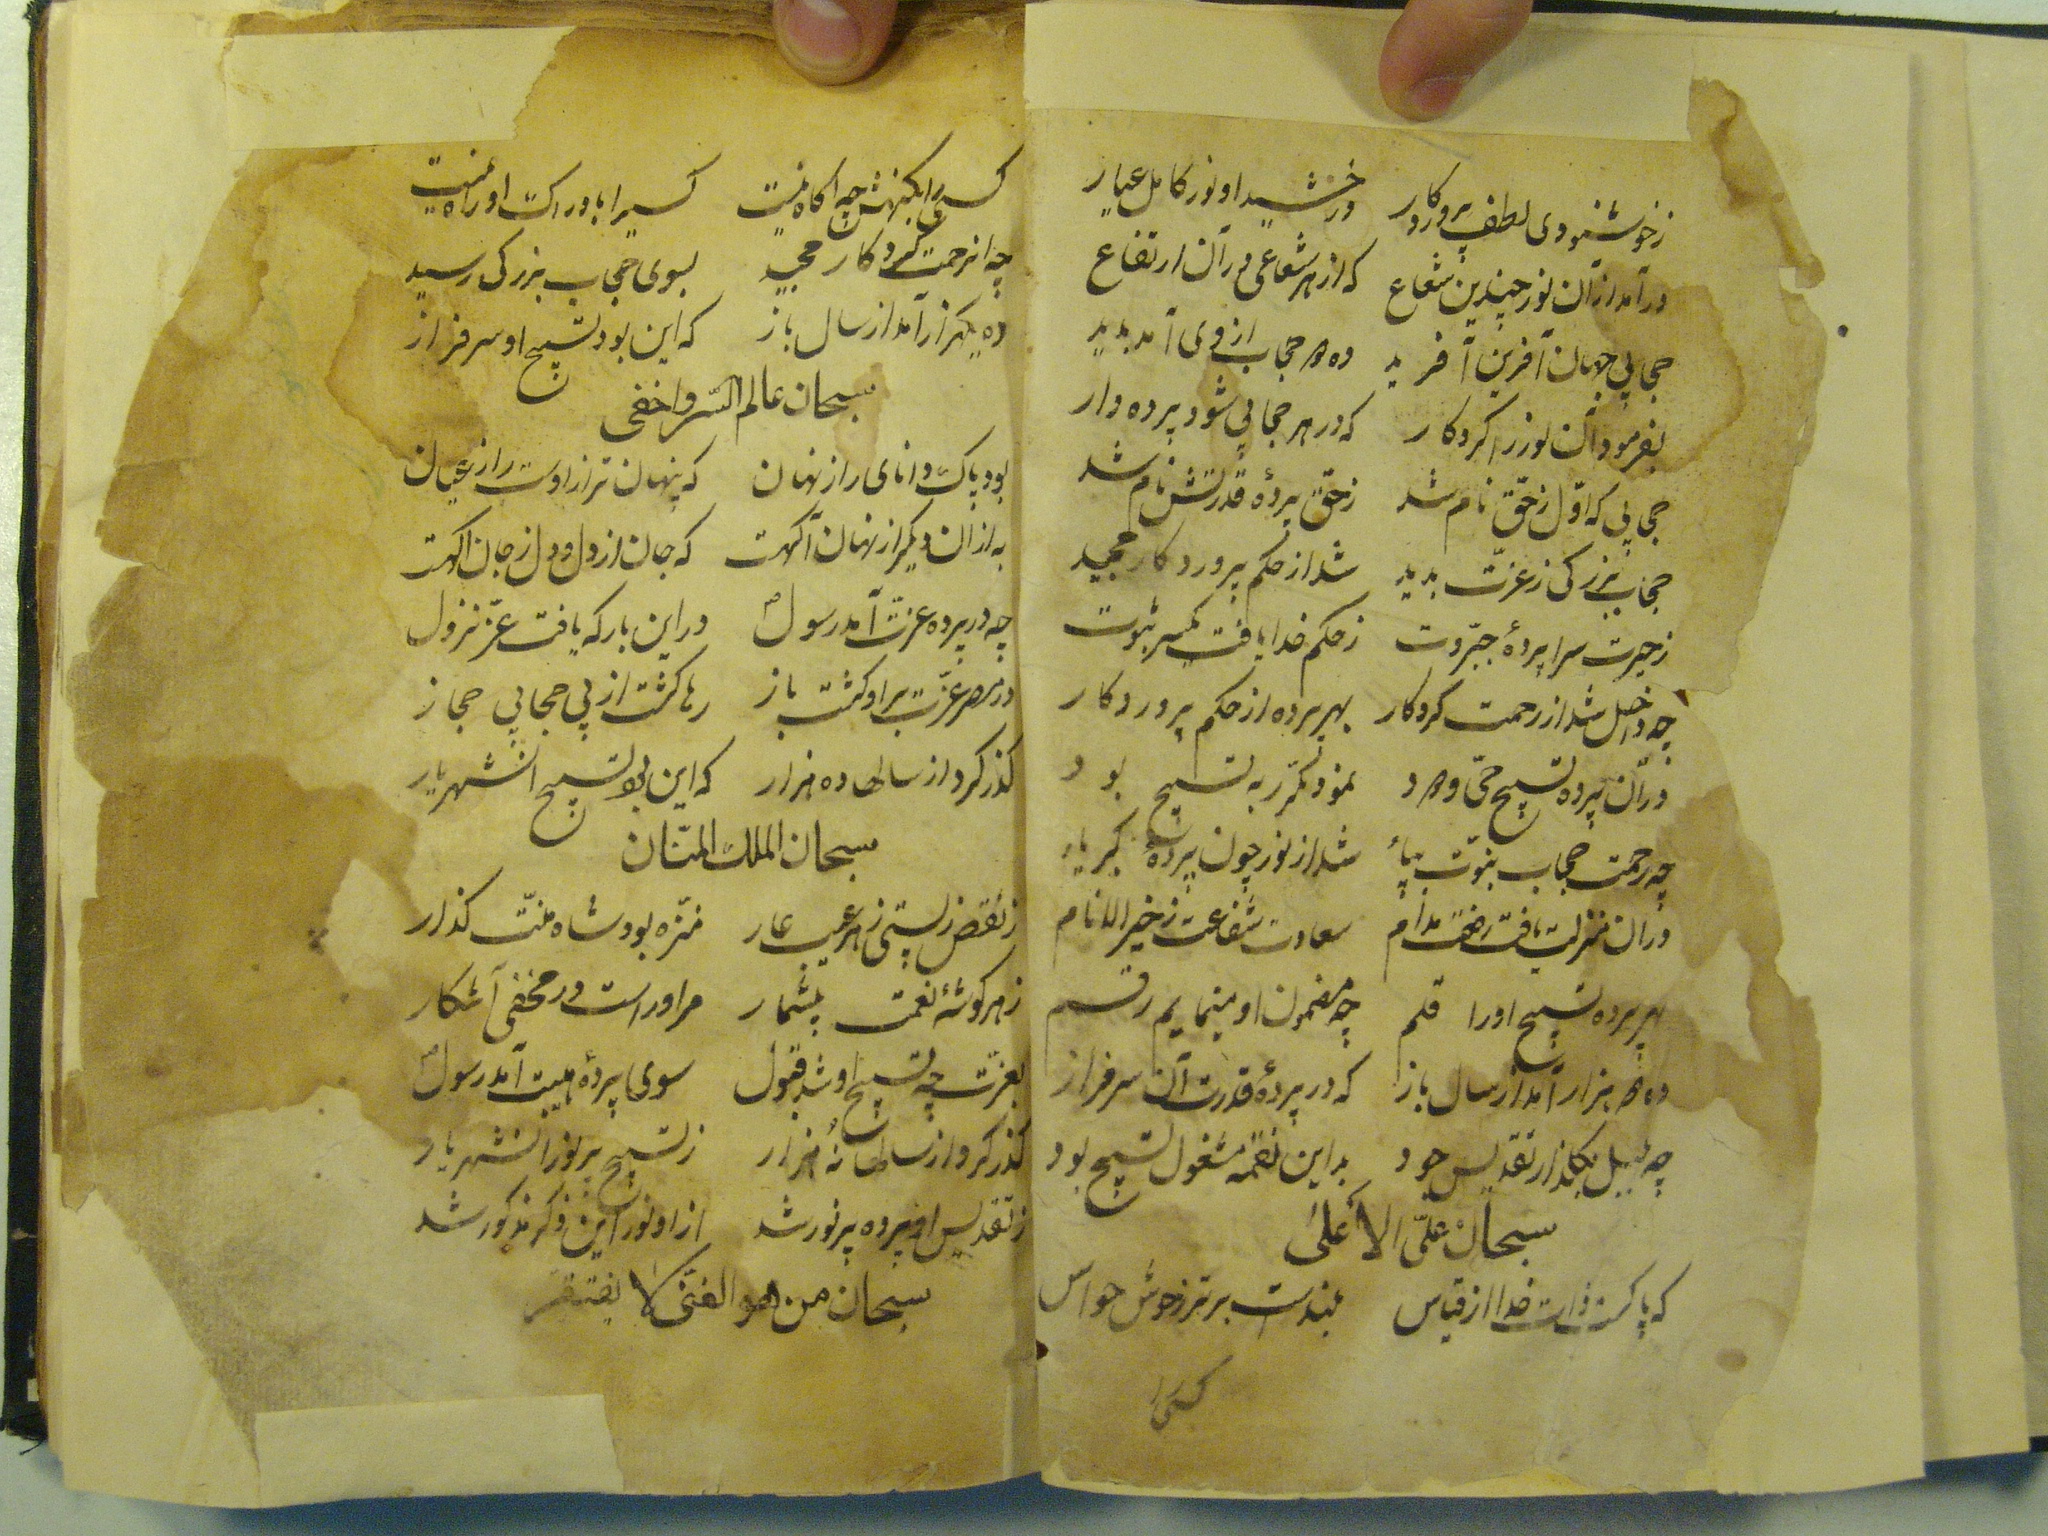 زخوشنودی لطف پروردکار درخشید او نور کامل عیار
درآمد ازآن نور چندین شعاع که از هر شعاعی درآن ارتفاع
حجابی جهان آفرین آفرید ده و هر حجاب از وی آمد بدید
بفرمود آن نور را کردکار که در هر حجابی شود پرده دار
حجابی که اوّل زحقّ نام شد زحق پردهٔ قدرتش نام شد
حجاب بزرکی زعزّت بدید شد از حکم پروردکار مجید
زحیرت سراپردهٔ جبّروت زحکم خدا یافت یکسر ثبوت
چه داخل شد از رحمت کردکار بهر پرده از حکم پروردکار
درآن پرده تسبیح حیّ ودود نمود مکرّر به تسبیح بود
چه رحمت حجاب نبوّت بپا شد از نور چون پردهٔ کبریا
درآن منزلت یافت مدام سعادت شفاعت زخیر الانام
بهر پرده تسبیح اورا قلم چه مضمون او مینمایم رقم
ده و هزار آمد از سال باز که در پردهٔ قدرت آن سرفراز
چه بلبل بکلزار تقدیس جود بداین نغمه مشغول تسبیح بود
سبحان علیّ الاعلیٰ
که پاکست ذات خدا از قیاس بلندست برتر زحوش حواس
کسی را
کسی را بکنهش چه اکاه نیست کسیرا با دوراکت او راه نیست
چه از رحمت کردکار مجید بسوی حجاب بزرکی رسید
ده یکهزار آمد از سال باز که این بود تسبیح او سرفراز
سبحان عالم السّر واخفی
بود پاک و انای راز نهان که پنهان تر از اوست راز عیان
به از آن دیکر از نهان آکهت که جان از دل و دل زجان اکهت
چه در پرده عزّت آمد رسول ص در این بارکه یافت عزّ نزول
در عزّت بر او کشت باز رها کشت از پی حجابی حجاز
کذر کرد از سالها ده هزار که این بود تسبیح آنشهریار
سبحان الملک المنّان
زنقص زپستی زهر عیب عار منزّه بود شاه منّت کذار
زهر کوشهٔ نعمت بیشمار مر اوراست در مخفی آشکار
بعزّت چه تسبیح او شد قبول سوی پردهٔ هیبت آمد رسول ص
کذر کرد از سالها نُه هزار زتسبیح پرنور آنشهریار
زتقدیس او پرده پرنور شد از او نور این ذکر مذکور شد
سبحان من هو الغنیّ لا یفتقر